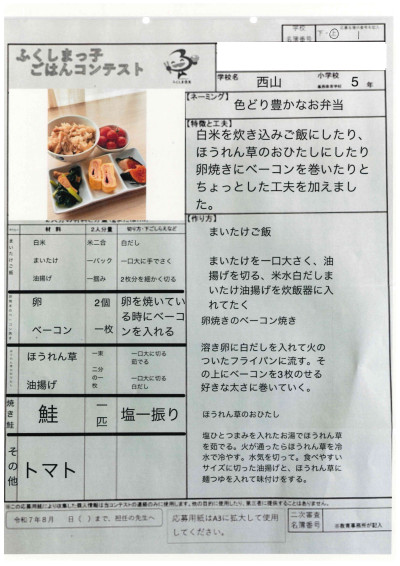 学校
名簿番号
ふくしまっ子
ごはんコンテスト
学校名
西山
小学校
5
年
【ネーミング】
色どり豊かなお弁当
【特徴と工夫】
白米を炊き込みご飯にしたり、
ほうれん草のおひたしにしたり
卵焼きにベーコンを巻いたりと
ちょっとした工夫を加えまし
た。
材 料
2人分量
切り方・下ごしらえなど
まいたけご飯
白米
米二合
白だし
まいたけ
一パック
一口大に手でさく
油揚げ
一掴み
2枚分を細かく切る
卵
2個
卵を焼いてい
る時にベーコ
ンを入れる
ベーコン
一枚
ほうれん草
一束
一口大に切る
茹でる
油揚げ
二分
の一
枚
一口大に切る
白だし
焼き鮭
鮭
一匹
塩一振り
その他
トマト
【作り方】
まいたけご飯
まいたけを一口大さく、油
揚げを切る、米水白だしま
いたけ油揚げを炊飯器に入
れてたく
卵焼きのベーコン焼き
溶き卵に白だしを入れて火の
ついたフライパンに流す。そ
の上にベーコンを3枚のせる
好きな太さに巻いていく。
ほうれん草のおひたし
塩ひとつまみを入れたお湯でほうれん草
を茹でる。火が通ったらほうれん草を冷
水で冷やす。水気を切って。食べやすい
サイズに切った油揚げと、ほうれん草に
麺つゆを入れて味付けをする。
※この応募用紙により収集した個人情報は当コンテストの連絡のみに使用します。他の目的に使用したり、第三者に提供することはありません。
令和7年8月　日（ ）まで、担任の先生へ
応募用紙はA3に拡大して使用
してください。
二次審査
名簿番号
※教育事務所が記入